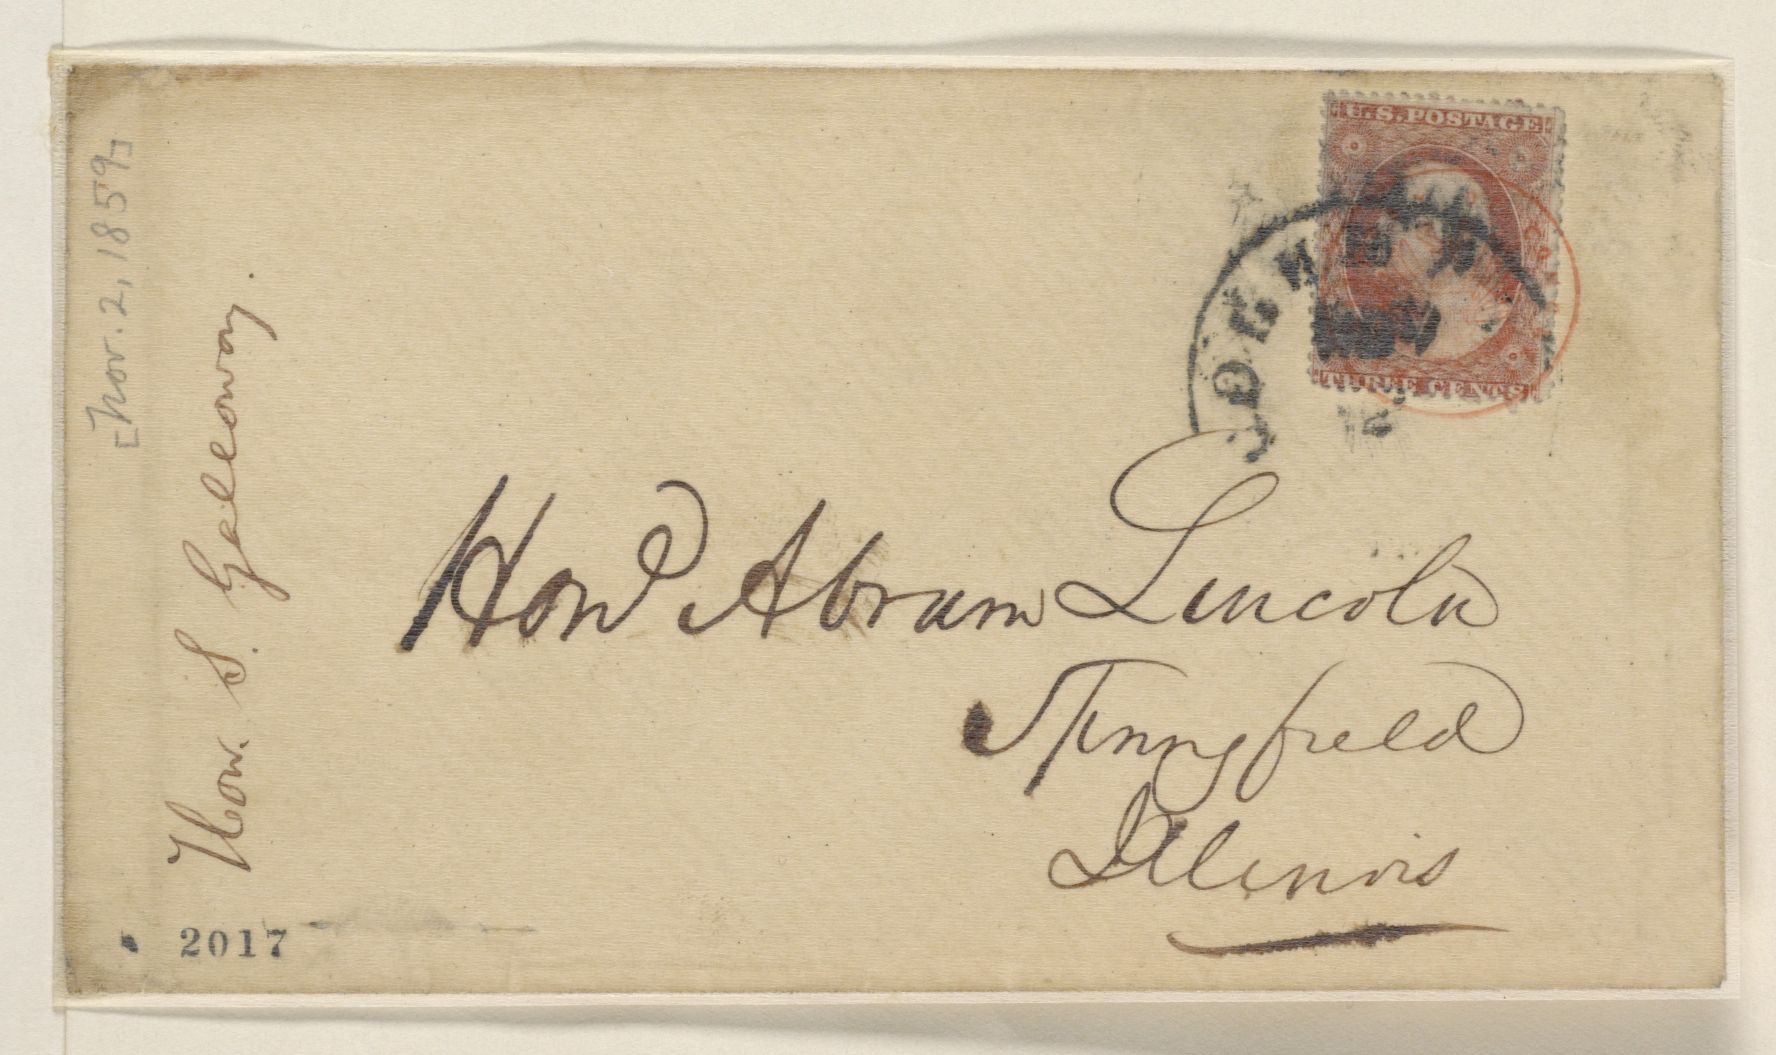 [Nov. 2, 1859]
Hon. S. Galloway.
U.S. POSTAGE
THREE CENTS
NOV
2
Hond Abram Lincoln
Springfield
Illinois
2017